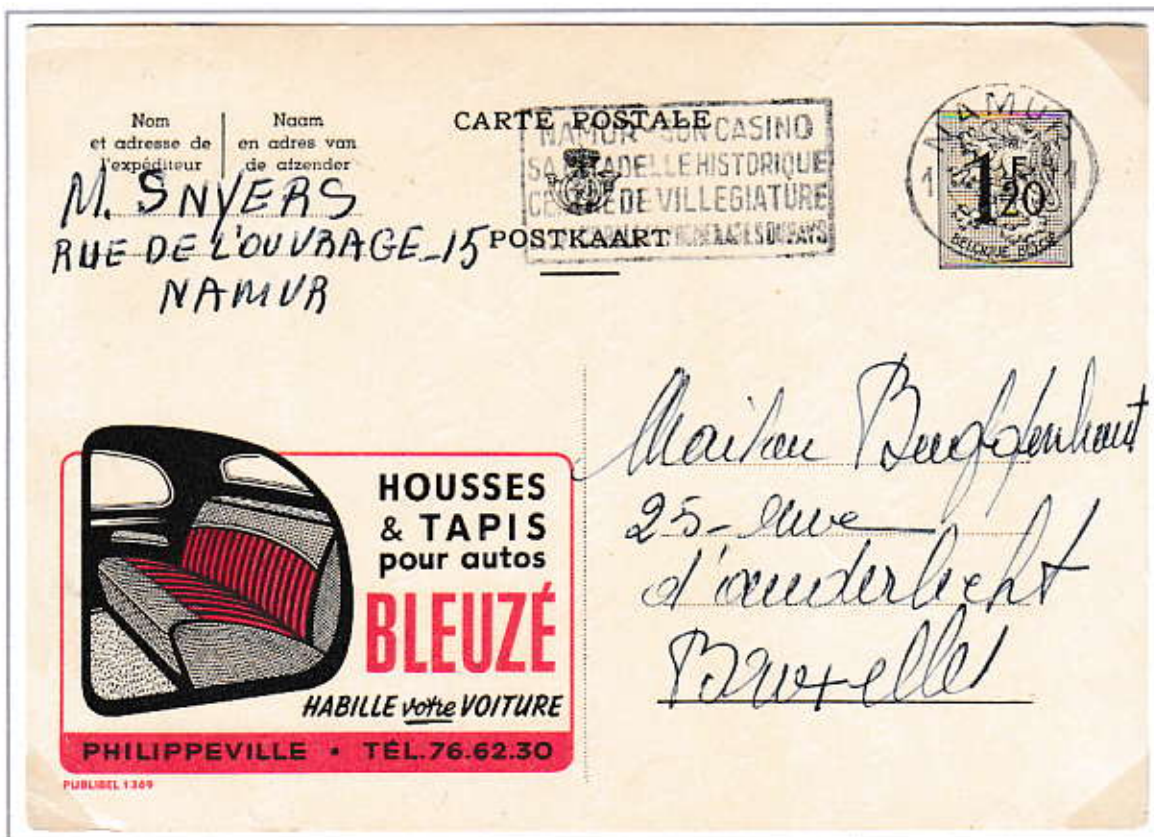 Nom
et adresse de
l'expéditeur
Naam
en adres van
de afzender
CARTE POSTALE
POSTKAART
NAMUR SON CASINO
SA CITADELLE HISTORIQUE
CENTRE DE VILLEGIATURE
DU PAYS
NAMUR
1F20
BELGIQUE BELGIE
M. SNYERS
RUE DE L'OUVRAGE_15
NAMUR
Maison Buggenhout
25- rue
d'anderlecht
Bruxelles
HOUSSES
& TAPIS
pour autos
BLEUZÉ
HABILLE votre VOITURE
PHILIPPEVILLE • TÉL.76.62.30
PUBLIBEL 1369